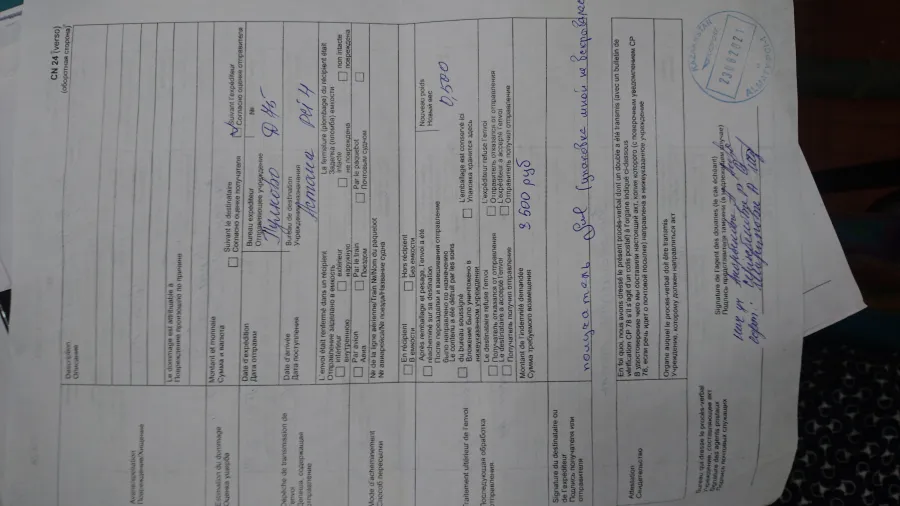 CN 24 (verso)
(оборотная сторона)
Description
Описание
Avarie/spoliation
Повреждение/Хищение
Le dommage est attribué à
Повреждение произошло по причине
Estimation du dommage
Оценка ущерба
Montant et monnaie
Сумма и валюта
Suivant le destinataire
Согласно оценке получателя
Suivant l'expéditeur
Согласно оценке отправителя
Dépêche de transmission de
l'envoi
Депеша, содержащая
отправление
Date d'expédition
Дата отправки
Bureau expéditeur
Отправляющее учреждение
Пулково
№
Date d'arrivée
Дата поступления
Bureau de destination
Учреждение назначения
Астана рей 4
L'envoi était renfermé dans un récipient
Отправление заделано в емкость
intérieur
внутреннюю
extérieur
наружную
La fermeture (plombage) du récipient était
Заделка (пломба) емкости
intacte
не повреждена
non intacte
повреждена
Mode d'acheminement
Способ пересылки
Par avion
Авиа
Par le train
Поездом
Par le paquebot
Почтовым судном
№ de la ligne aérienne/Train №/Nom du paquebot
№ авиарейса/№ поезда/Название судна
En récipient
В емкости
Hors récipient
Без емкости
Traitement ultérieur de l'envoi
Последующая обработка
отправления
Après remballage et pesage, l'envoi a été
réacheminé sur sa destination
После переупаковки и взвешивания отправление
было направлено по назначению
Nouveau poids
Новый вес
0,500
Le contenu a été détruit par les soins
du bureau soussigné
Вложение было уничтожено в
нижеуказанном учреждении
L'emballage est conservé ici
Упаковка хранится здесь
Le destinataire refuse l'envoi
Получатель отказался от отправления
L'expéditeur refuse l'envoi
Отправитель отказался от отправления
Le destinataire a accepté l'envoi
Получатель получил отправление
L'expéditeur a accepté l'envoi
Отправитель получил отправление
Montant de l'indemnité demandée
Сумма требуемого возмещения
500 руб
Signature du destinataire ou
de l'expéditeur
Подпись получателя или
отправителя
получатель
Attestation
Свидетельство
En foi quoi, nous avons dressé le présent procès-verbal dont un double a été transmis (avec un bulletin de
vérification CP 78 s'il s'agit d'un colis postal) à l'organe indiqué ci-dessous
В удостоверение чего мы составили настоящий акт, копия которого (с поверочным уведомлением CP
78, если речь идет о почтовой посылке) направлена в нижеуказанное учреждение
Organe auquel le procès-verbal doit être transmis
Учреждение, которому должен направляться акт
Bureau qui dresse le procès-verbal
Учреждение, составляющее акт
Signature des agents postaux
Подписи почтовых служащих
Signature de l'agent des douanes (le cas échéant)
Подпись представителя таможни (в надлежащем случае)